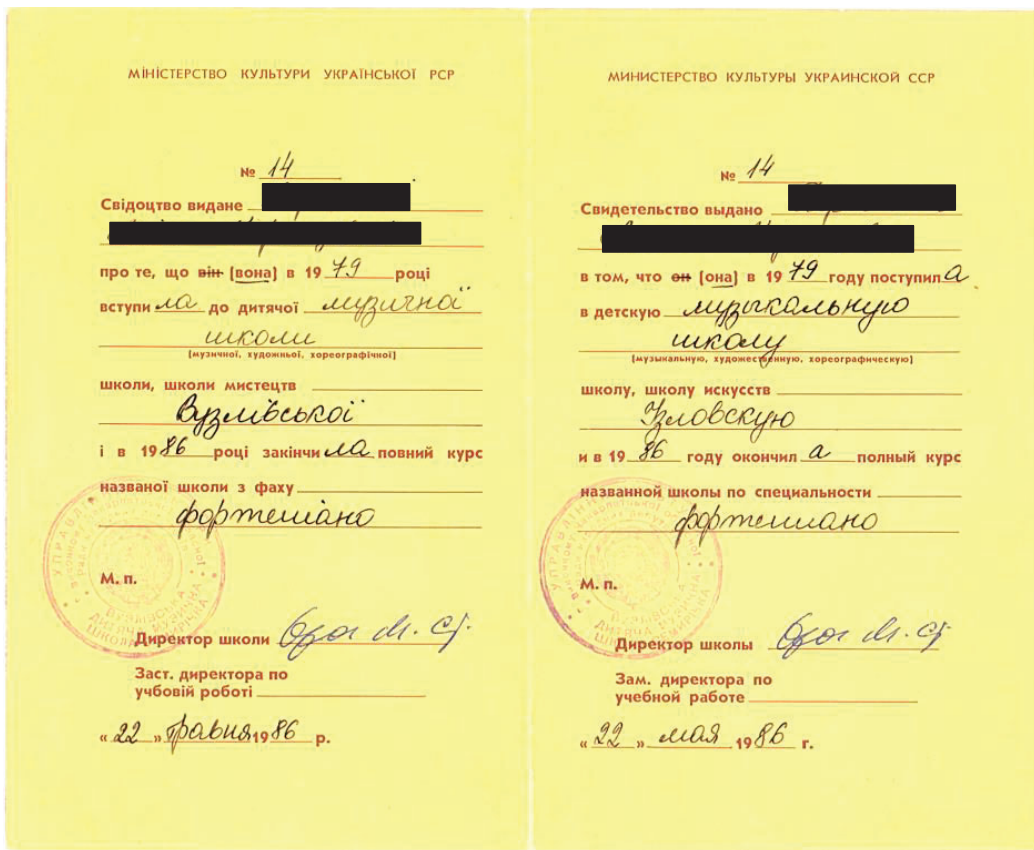 МІНІСТЕРСТВО КУЛЬТУРИ УКРАЇНСЬКОЇ РСР
№ 14
Свідоцтво видане
про те, що він (вона) в 1979 році
вступила до дитячої музичної
школи
(музичної, художньої, хореографічної)
школи, школи мистецтв
Вузлівської
і в 1986 році закінчила повний курс
названої школи з фаху
фортепіано
М. п.
Директор школи
Заст. директора по
учбовій роботі
« 22 » травня 1986 р.
МИНИСТЕРСТВО КУЛЬТУРЫ УКРАИНСКОЙ ССР
№ 14
Свидетельство выдано
в том, что он (она) в 1979 году поступила
в детскую музыкальную
школу
(музыкальную, художественную, хореографическую)
школу, школу искусств
Узловскую
и в 1986 году окончила полный курс
названной школы по специальности
фортепиано
М. п.
Директор школы
Зам. директора по
учебной работе
« 22 » мая 1986 г.